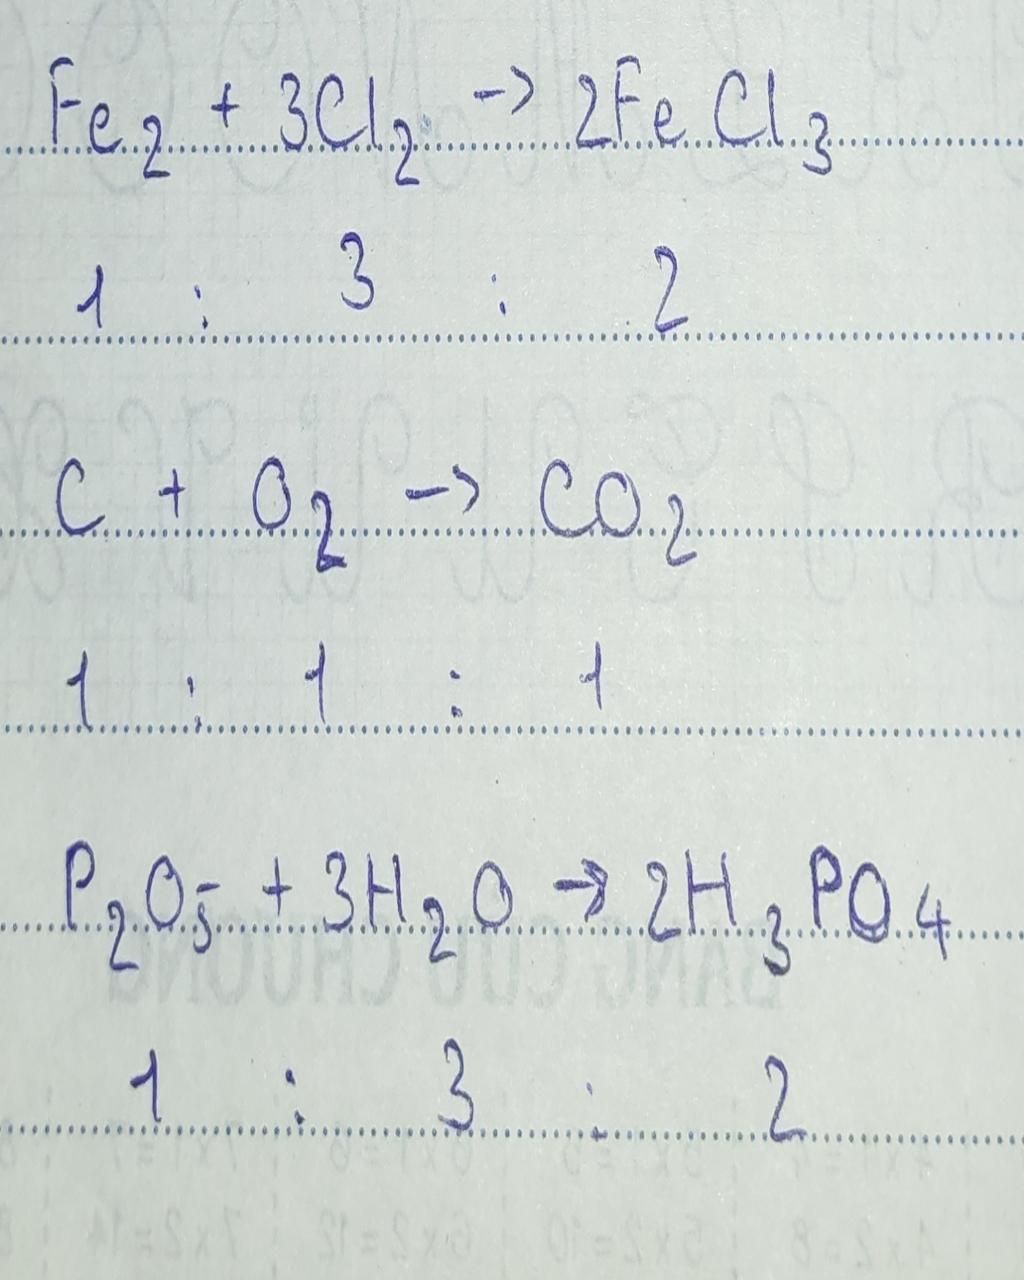 Fe₂ + 3Cl₂ -> 2FeCl₃
1 : 3 : 2
C + O₂ -> CO₂
1 : 1 : 1
P₂O₅ + 3H₂O -> 2H₃PO₄
1 : 3 : 2